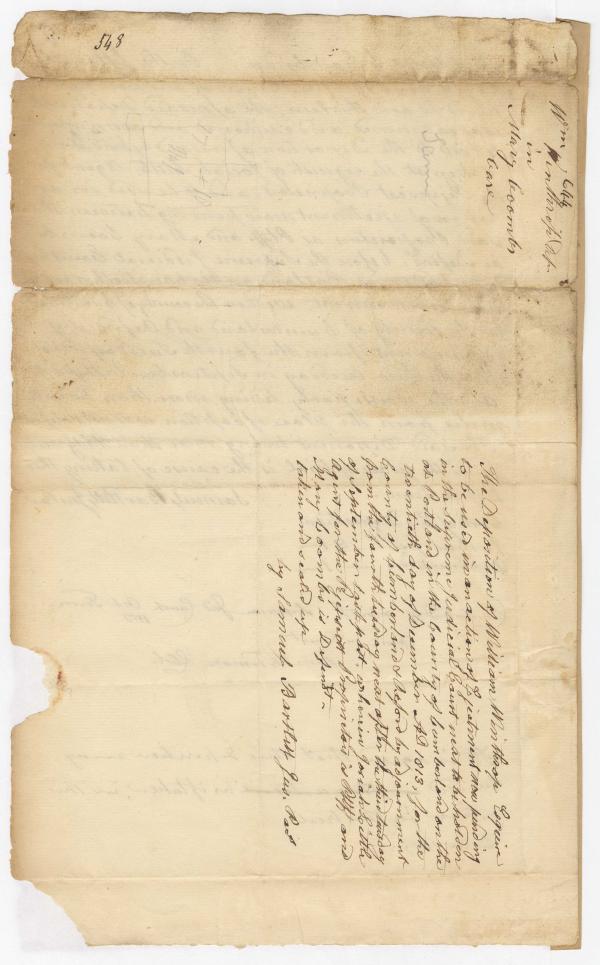 548
Wm Winthrop Dep.
in
Mary Coombs
Case
The Deposition of William Winthrop Esquire
to be used in an action of Ejectment now pending
in the Supreme Judicial Court next to be holden
at Portland in the County of Cumberland on the
twentieth day of December AD 1813, for the
County of Cumberland & Oxford by adjournment
from the fourth tuesday next after the third tuesday
of September last past, wherein Josiah Little
Agent for the Pejepscott Proprietors is Plff and
Mary Coombs is Defendt.
taken and sealed up
by Samuel Bartlett Jus. Pacs